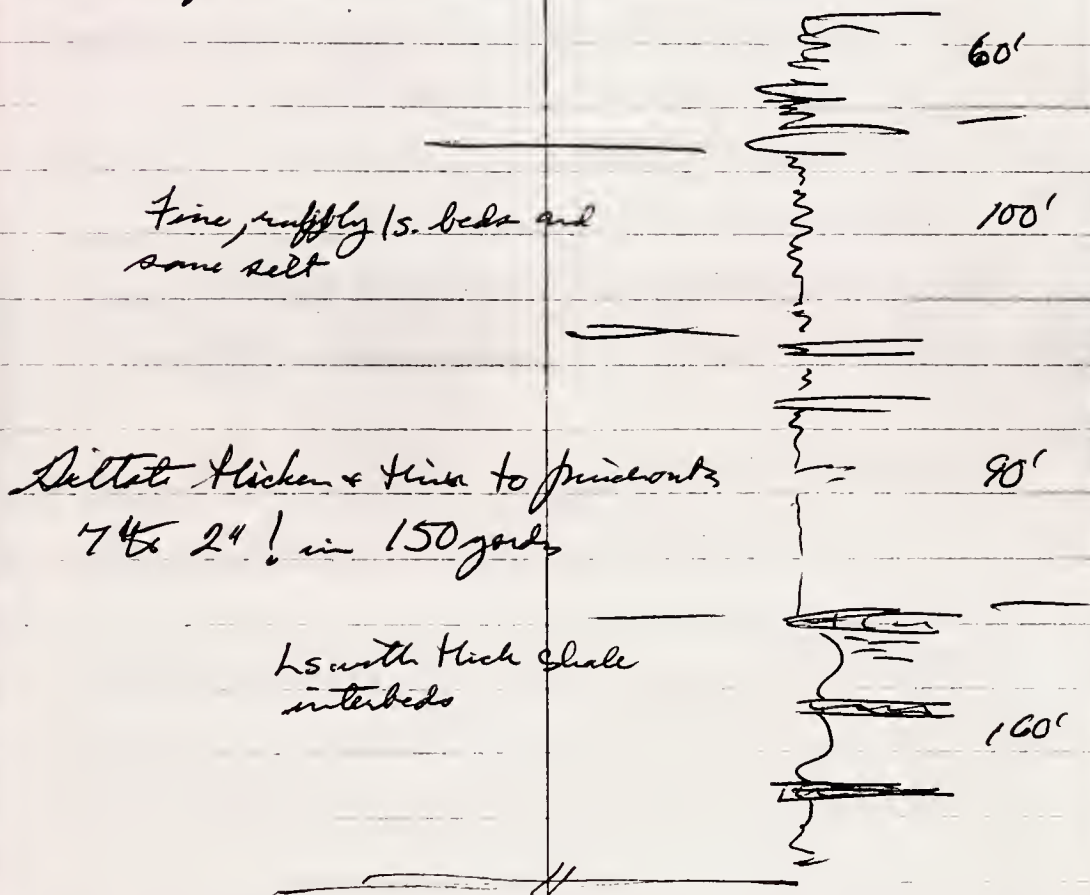 60'
Fine, ruffly ls. beds and
some silt
100'
thicken & thin to pinchouts
90'
2" ! in 150 yards
Ls with thick shale
interbeds
160'